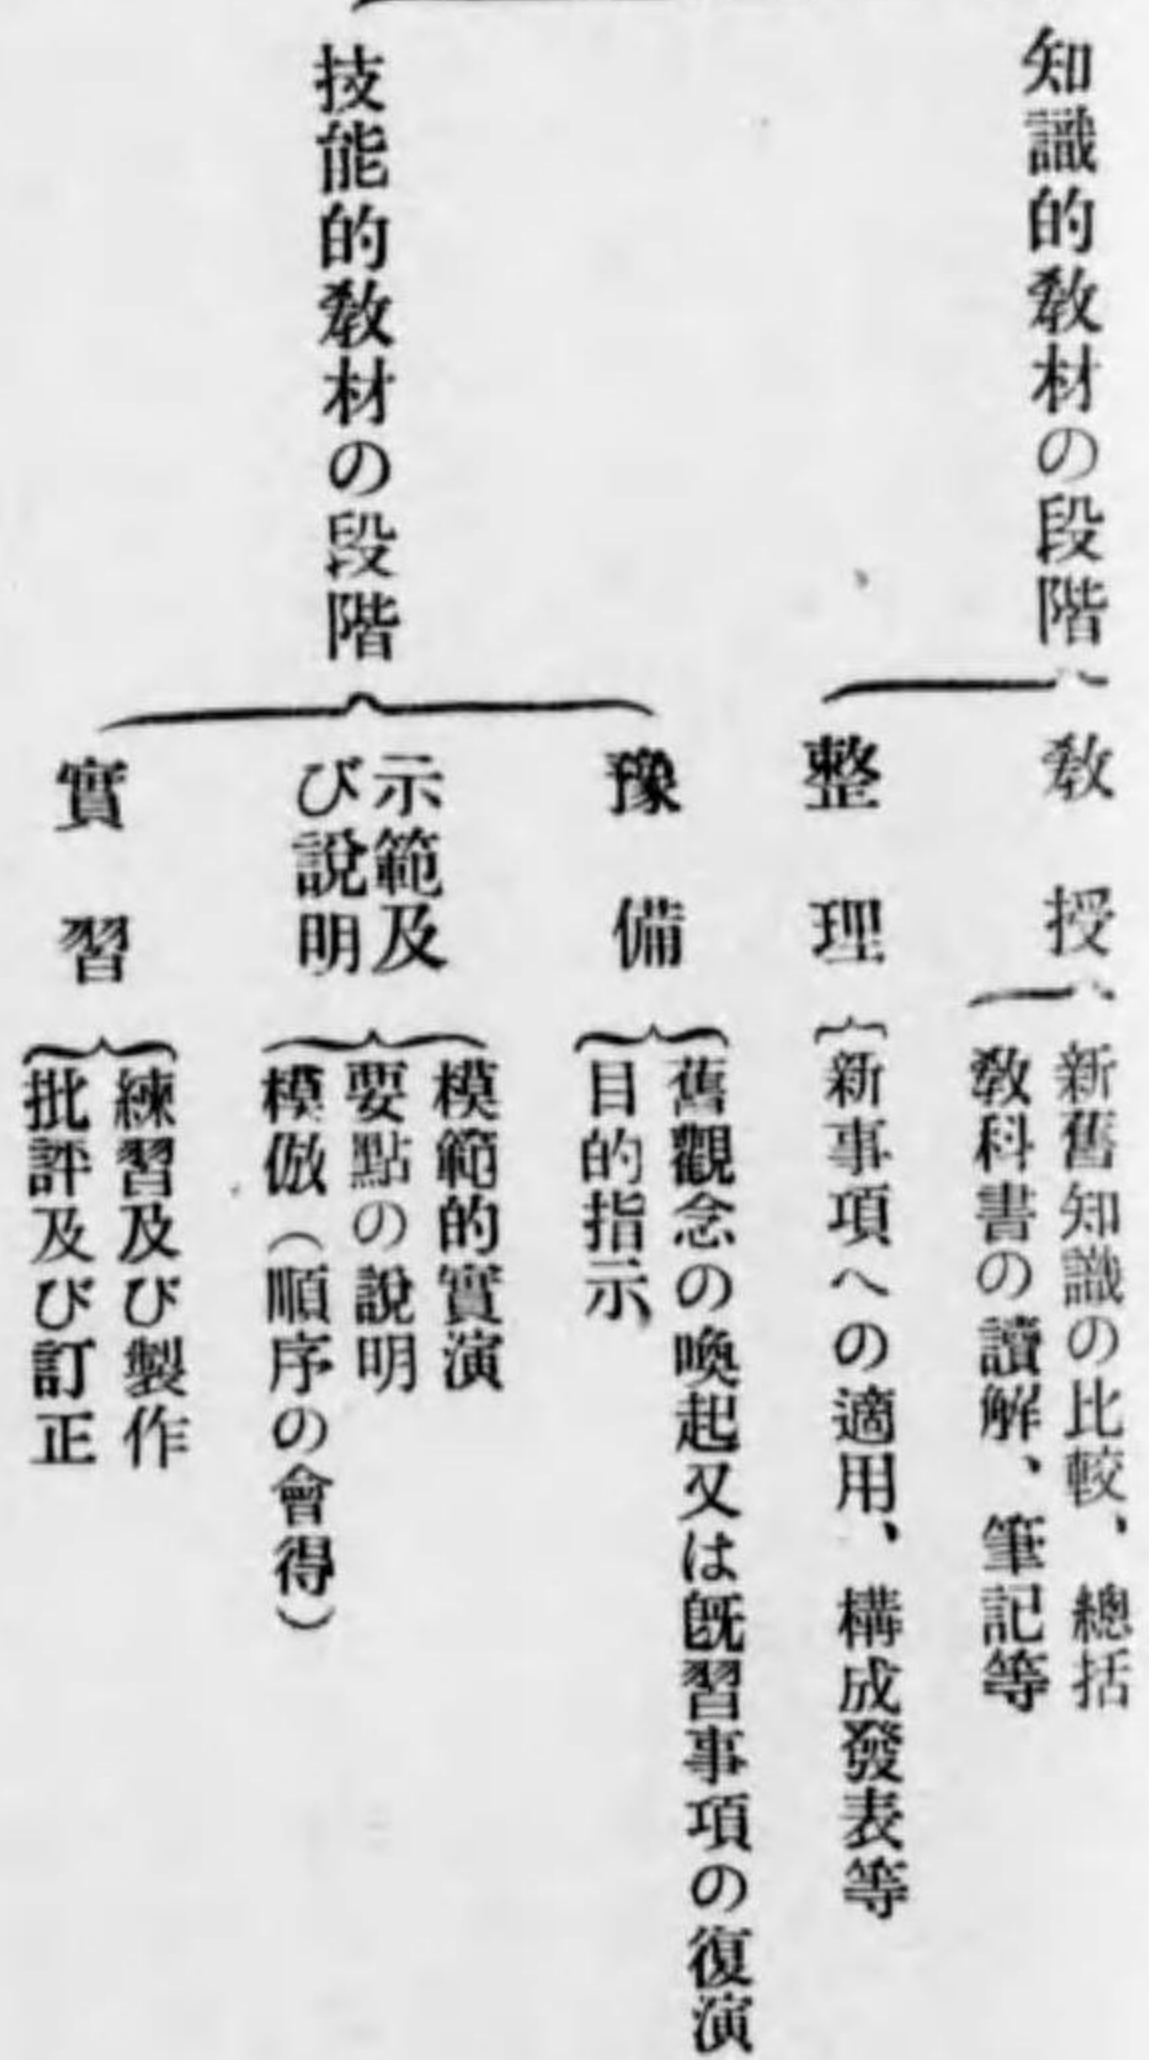 知識的敎材の段階
敎授
新舊知識の比較、總括
敎科書の讀解、筆記等
整理
新事項への適用、構成發表等
技能的敎材の段階
豫備
舊觀念の喚起又は旣習事項の復演
目的指示
示範及
び說明
模範的實演
要點の說明
模倣（順序の會得）
實習
練習及び製作
批評及び訂正